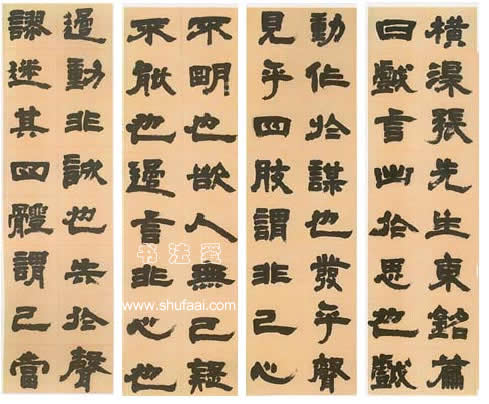 橫渠張先生東銘篇
曰戲言出於思也戲
動作於謀也發乎聲
見乎四肢謂非己心
不明也欲人無己疑
不能也過言非心也
過動非誠也失於聲
謬迷其四體謂己當
书法爱
www.shufaai.com